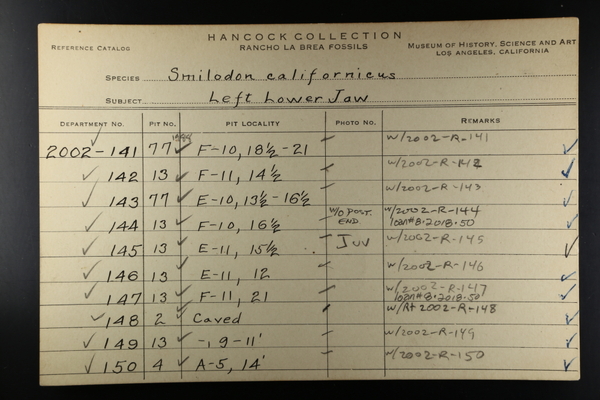 HANCOCK COLLECTION
REFERENCE CATALOG RANCHO LA BREA FOSSILS MUSEUM OF HISTORY, SCIENCE AND ART
LOS ANGELES, CALIFORNIA
SPECIES Smilodon californicus
SUBJECT Left Lower Jaw
DEPARTMENT NO. PIT NO. PIT LOCALITY PHOTO NO. REMARKS
2002-141 77 F-10, 18½-21 w/2002-R-141
142 13 F-11, 14½ w/2002-R-142
143 77 E-10, 13½-16½ w/2002-R-143
144 13 F-10, 16½ w/o POST. END w/2002-R-144
loan#8.2018.50
145 13 E-11, 15½ Juv w/2002-R-145
146 13 E-11, 12 w/2002-R-146
147 13 F-11, 21 w/2002-R-147
loan#8.2018.50
148 2 Caved w/Rt 2002-R-148
149 13 -, 9-11' w/2002-R-149
150 4 A-5, 14' w/2002-R-150